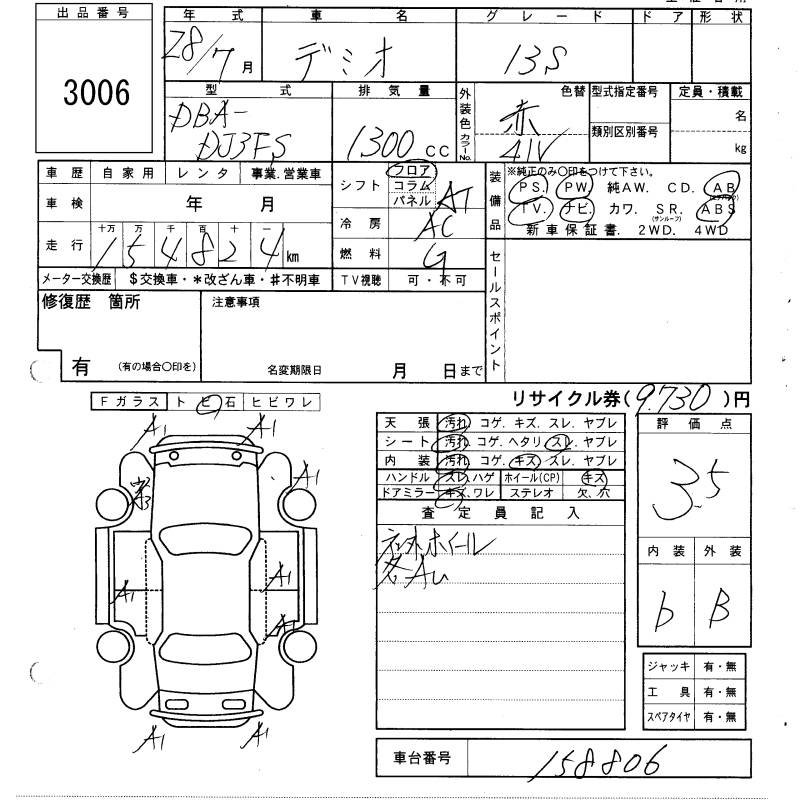 出品番号
3006
年式 車名 グレード ドア 形状
28/7月 デミオ 13S
型式 排気量 外装色 カラーNo. 色替 型式指定番号 定員・積載
DBA-DJ3FS 1300cc 赤 41V 類別区別番号 名 kg
車歴 自家用 レンタ 事業.営業車
車検 年 月
走行 十万 万 千 百 十 一
154824 km
メーター交換歴 $交換車・*改ざん車・#不明車
シフト フロア コラム パネル AT
冷房 AC
燃料 G
TV視聴 可・不可
装備品 ※純正のみ〇印をつけて下さい。
PS. PW. 純AW. CD. AB(エアバック)
TV. ナビ. カワ. SR.(サンルーフ) ABS
新車保証書. 2WD. 4WD
セールスポイント
修復歴 箇所
有 (有の場合〇印を)
注意事項
名変期限日 月 日まで
Fガラス トビ石 ヒビワレ
リサイクル券(9,730)円
A1 A1
A1
A1
A1
A1
A1 A1
天張 汚れ コゲ. キズ. スレ. ヤブレ
シート 汚れ コゲ. ヘタリ スレ. ヤブレ
内装 汚れ コゲ. キズ スレ. ヤブレ
ハンドル スレ.ハゲ ホイール(CP) キズ
ドアミラー キズ.ワレ ステレオ 欠.穴
査定員記入
社外ホイール
各AU
評価点
3.5
内装 外装
b B
ジャッキ 有・無
工具 有・無
スペアタイヤ 有・無
車台番号 158806